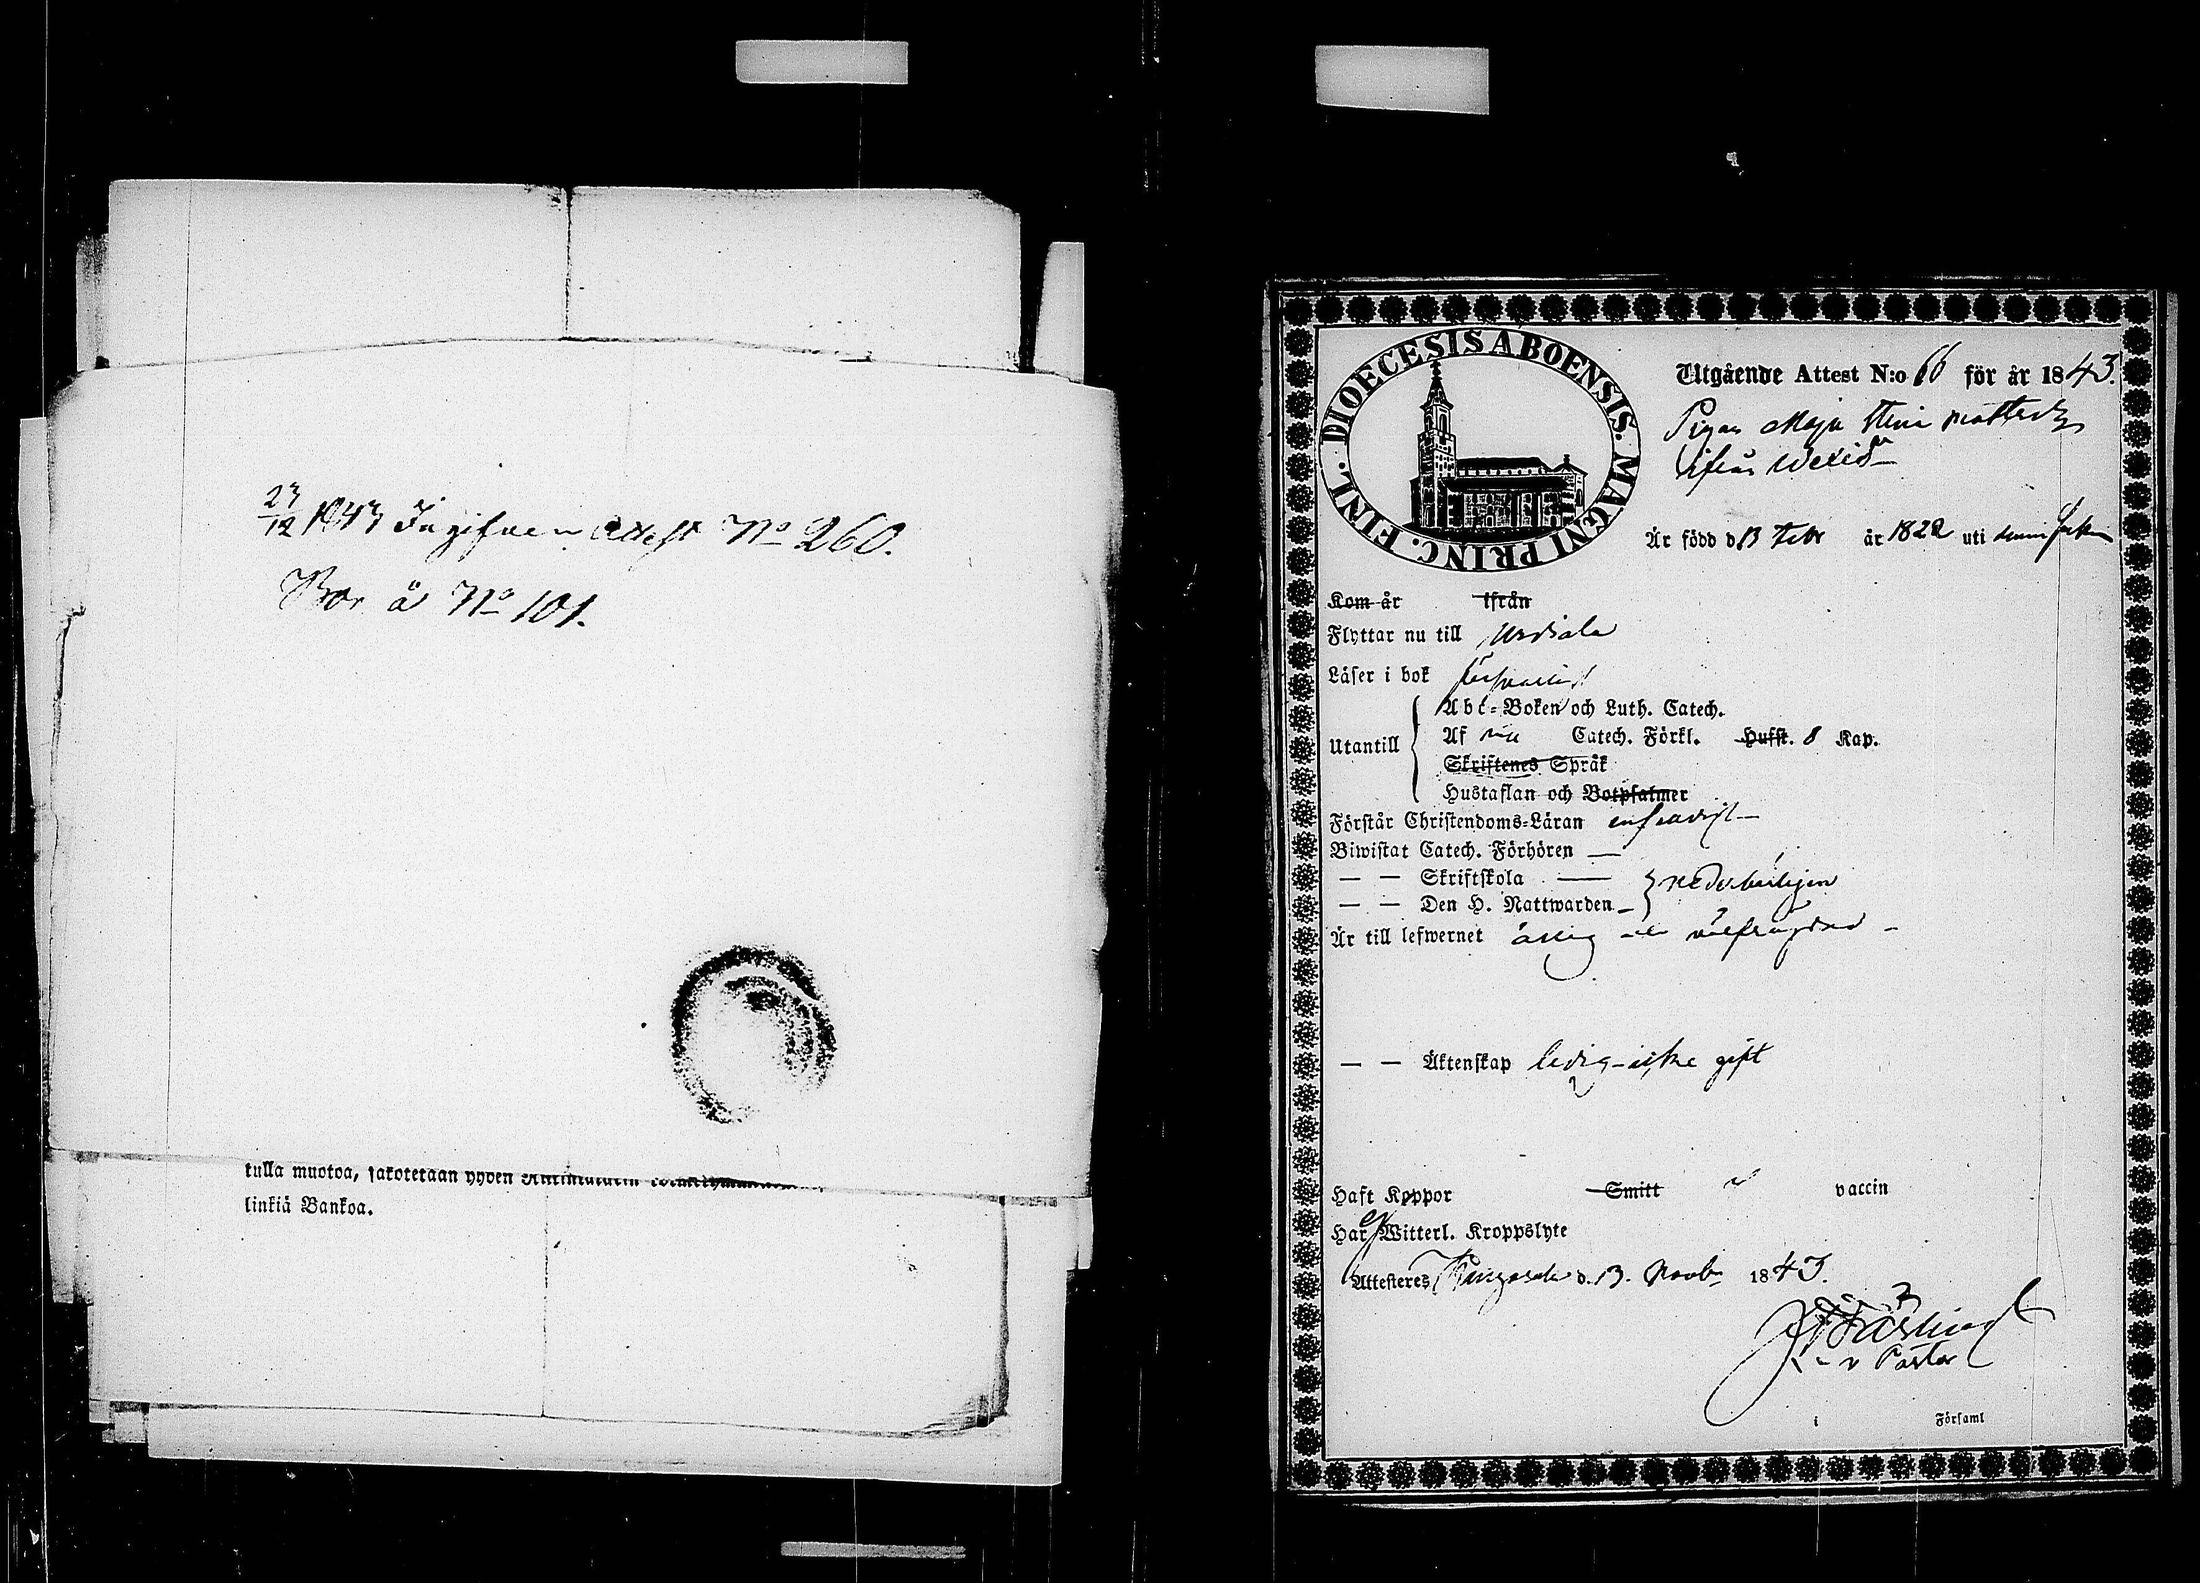 23/12 1843 Ingifven Attest No 260.
Bor å No 101.
tulla muotoa, jakotetaan yhden
linkiä Bankoa.
DIOECESIS ABOENSIS. MAGNI PRINC. FINL.
Utgående Attest N:o 66 för år 1843.
Pigan Maja Stina Mattsdr
ifrån
Är född d. 13 Febr år 1822 uti denna
Kom år ifrån
Flyttar nu till Urdiala
Läser i bok försvarligt
Utantill
Abc-Boken och Luth. Catech.
Af Catech. Förkl. Hufst. 8 Kap.
Skriftenes Språk
Hustaflan och Botpsalmer
Förstår Christendoms-Läran enfaldigt
Biwistat Catech. Förhören —
— — Skriftskola — vederbörligen
— — Den H. Nattwarden —
Är till lefwernet ärlig och välfrägdad —
— — Äktenskap ledig icke gift
Haft Koppor Smitt vaccin
Har ej Witterl. Kroppslyte
Attesteres Kangasala d. 13. Novbr 1843.
v Pastor
i Församl